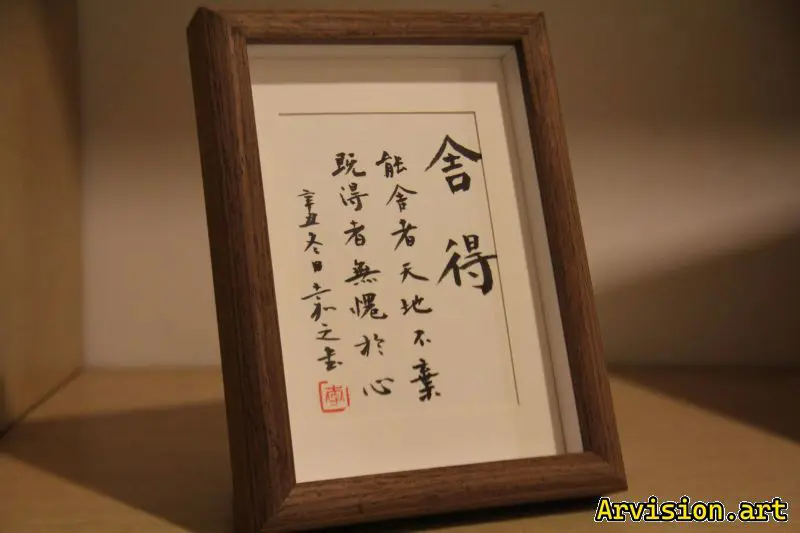 舍得
能舍者天地不棄
既得者無愧於心
辛丑冬日嘉之書
李
Arvision.art